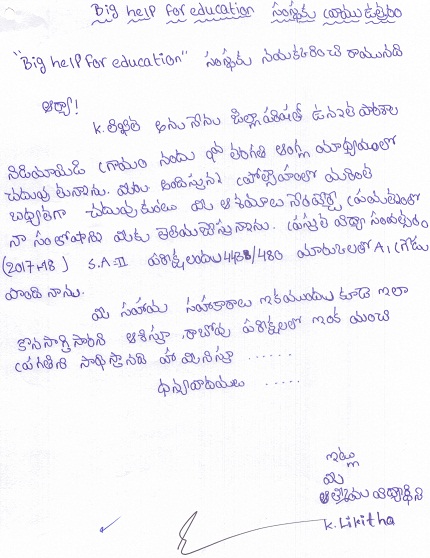 Big help for education సంస్థకు వ్రాయు ఉత్తరం
"Big help for education" సంస్థకు నమస్కరించి వ్రాయునది
ఆర్యా!
K. లిఖిత అను నేను జిల్లా పరిషత్ ఉన్నత పాఠశాల
గ్రామం నందు తరగతి ఆంగ్ల మాధ్యమంలో
చదువుతున్నాను. మీరు అందిస్తున్న ప్రోత్సాహంతో మరింత
బాధ్యతగా చదువుకుంటూ మీ ఆశయాలు నెరవేర్చే ప్రయత్నంలో
నా సంతోషాన్ని మీకు తెలియచేస్తున్నాను. ప్రస్తుత విద్యా సంవత్సరం
(2017-18) S.A-II పరీక్షలందు /480 మార్కులతో A1 గ్రేడు
పొందినాను.
మీ సహాయ సహకారాలు ఇకముందు కూడా ఇలా
కొనసాగిస్తారని ఆశిస్తూ, రాబోవు పరీక్షలలో ఇంకా మంచి
ప్రగతిని సాధిస్తానని హామీనిస్తూ ......
ధన్యవాదములు .....
ఇట్లు
మీ
విద్యార్థిని
K. Likitha